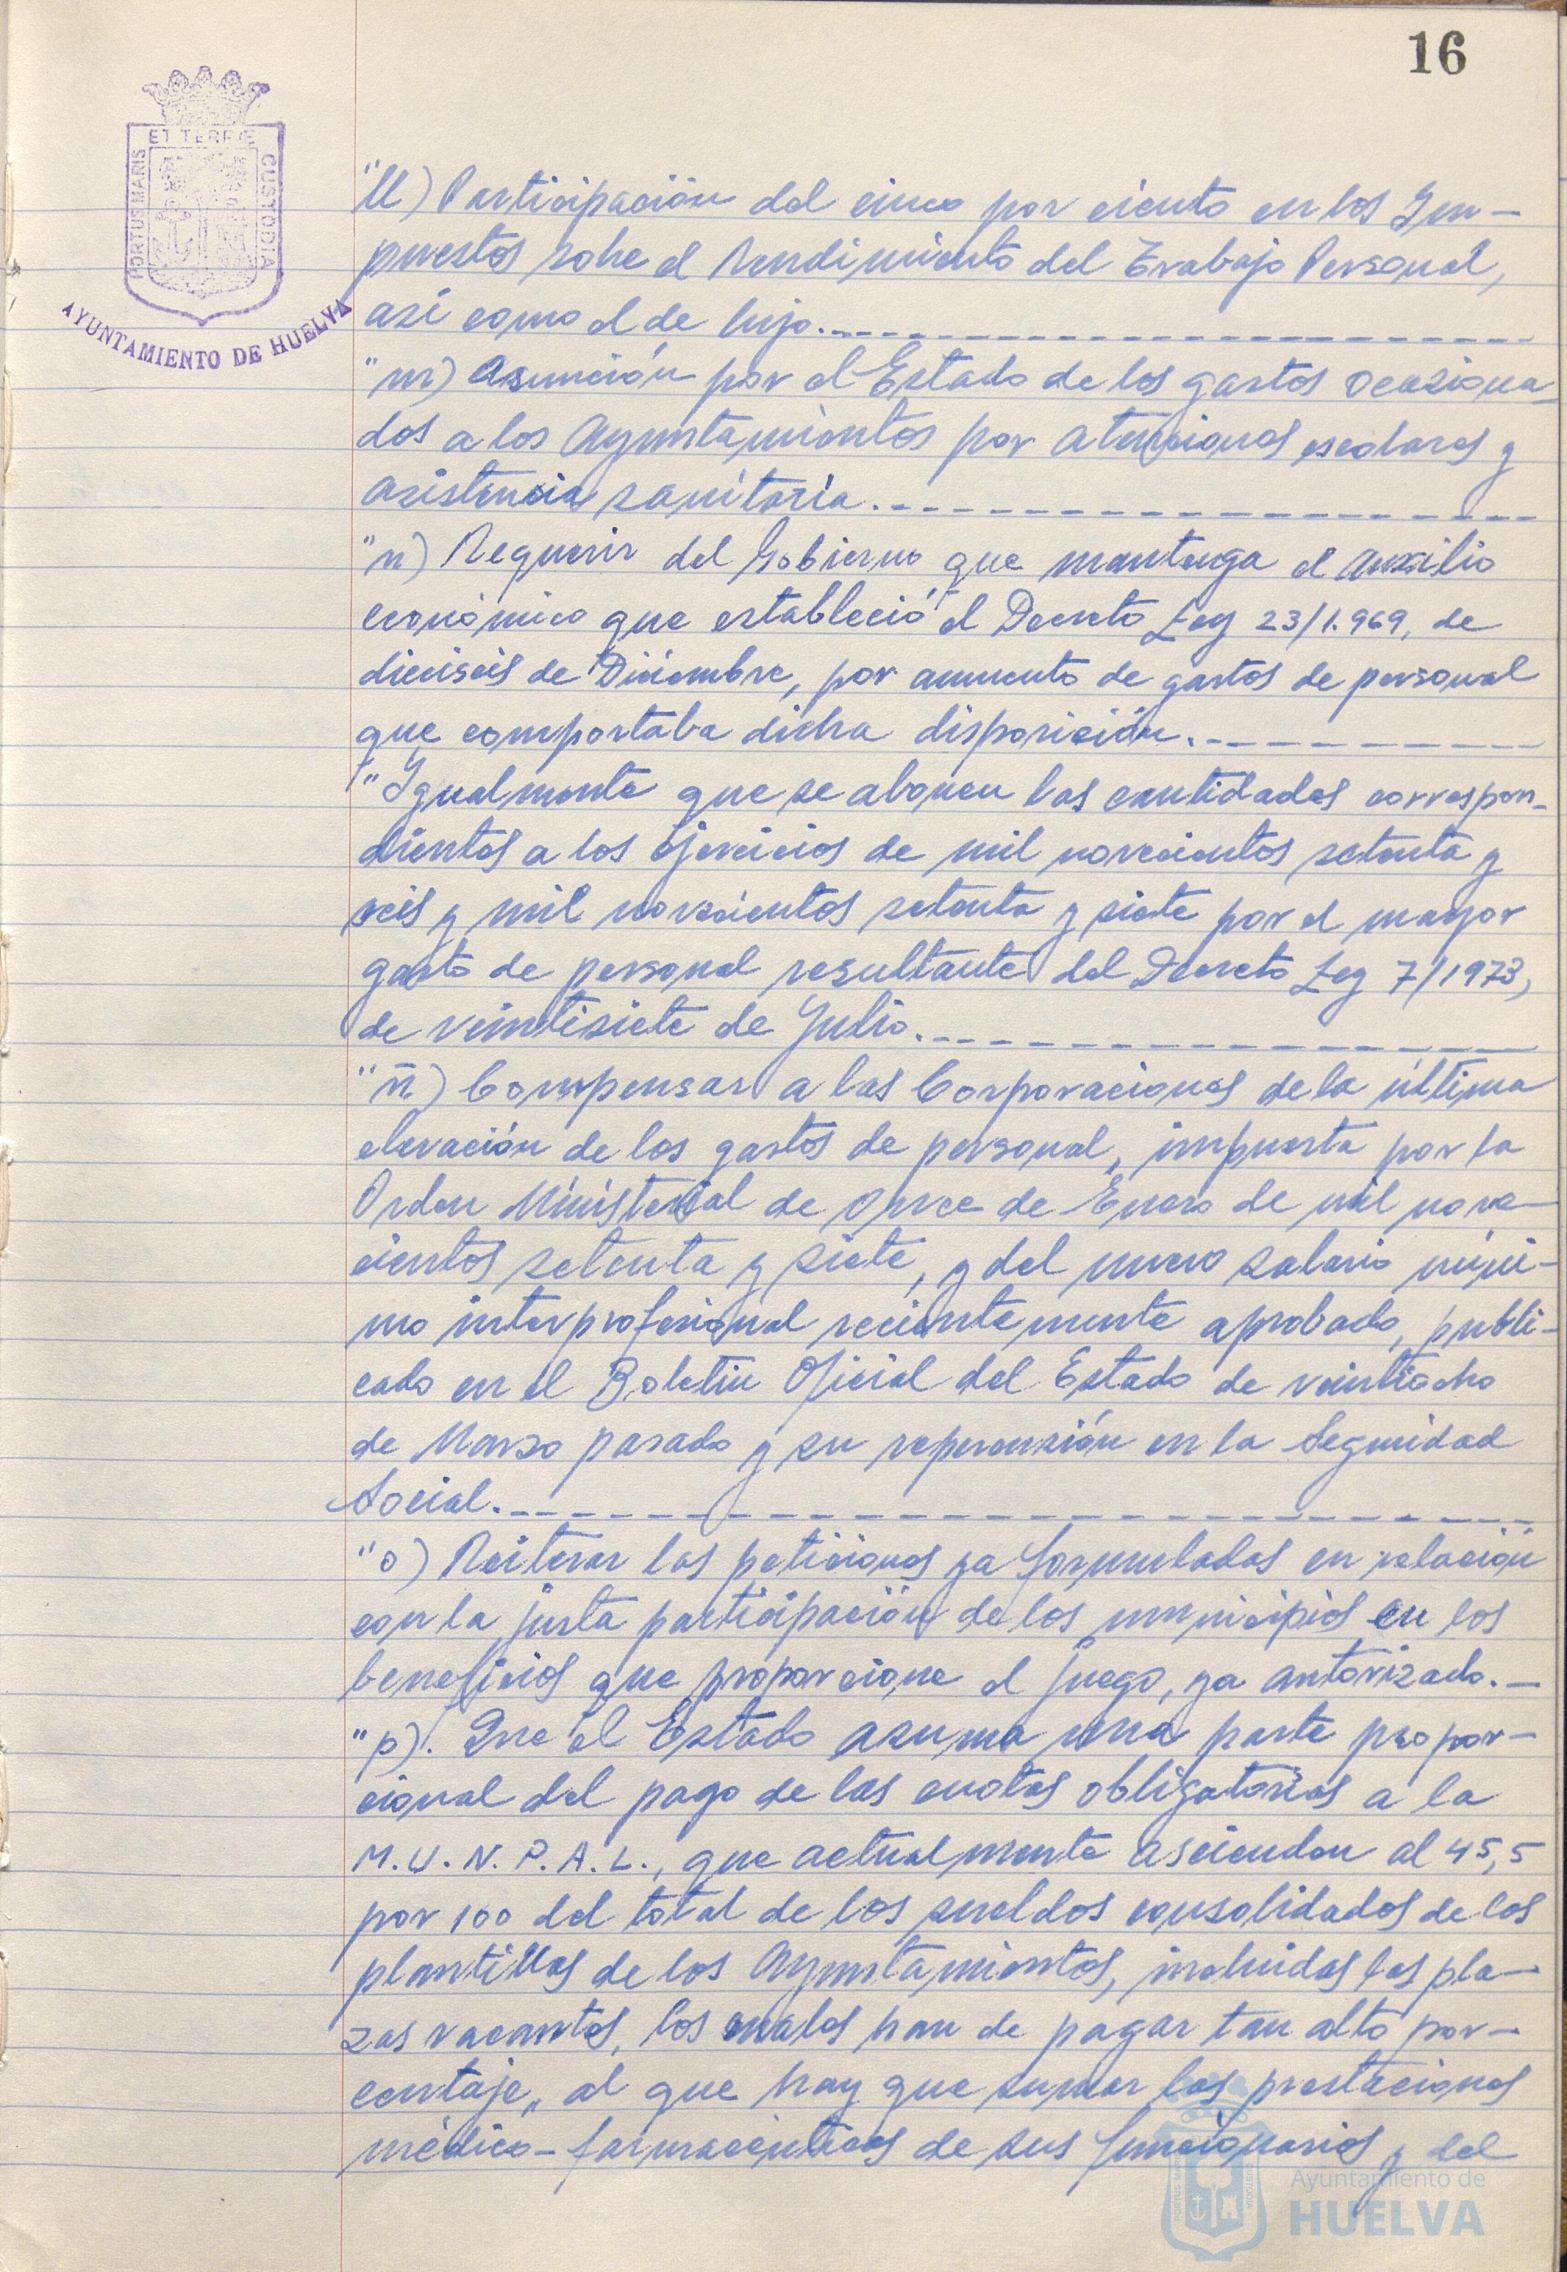 16
ET TERRÆ
PORTUS MARIS
CUSTODIA
AYUNTAMIENTO DE HUELVA
"ll) Participación del cinco por ciento en los Im-
puestos sobre el Rendimiento del Trabajo Personal,
así como el de lujo.
"m) Asunción por el Estado de los gastos ocasiona-
dos a los Ayuntamientos por atenciones escolares y
asistencia sanitaria.
"n) Requerir del Gobierno que mantenga el auxilio
económico que estableció el Decreto Ley 23/1.969, de
dieciséis de Diciembre, por aumento de gastos de personal
que comportaba dicha disposición.
"Igualmente que se abonen las cantidades correspon-
dientes a los ejercicios de mil novecientos setenta y
seis y mil novecientos setenta y siete por el mayor
gasto de personal resultante del Decreto Ley 7/1973,
de veintisiete de Julio.
"ñ) Compensar a las Corporaciones de la última
elevación de los gastos de personal, impuesta por la
Orden Ministerial de once de Enero de mil nove-
cientos setenta y siete, y del nuevo salario míni-
mo interprofesional recientemente aprobado, publi-
cado en el Boletín Oficial del Estado de veintiocho
de Marzo pasado y su repercusión en la Seguridad
Social.
"o) Reiterar las peticiones ya formuladas en relación
con la justa participación de los municipios en los
beneficios que proporcione el juego, ya autorizado.-
"p). Que el Estado asuma una parte propor-
cional del pago de las cuotas obligatorias a la
M.U.N.P.A.L., que actualmente ascienden al 45,5
por 100 del total de los sueldos consolidados de las
plantillas de los Ayuntamientos, incluidas las pla-
zas vacantes, los cuales han de pagar tan alto por-
centaje, al que hay que sumar las prestaciones
médico-farmacéuticas de sus funcionarios y del
Ayuntamiento de
HUELVA